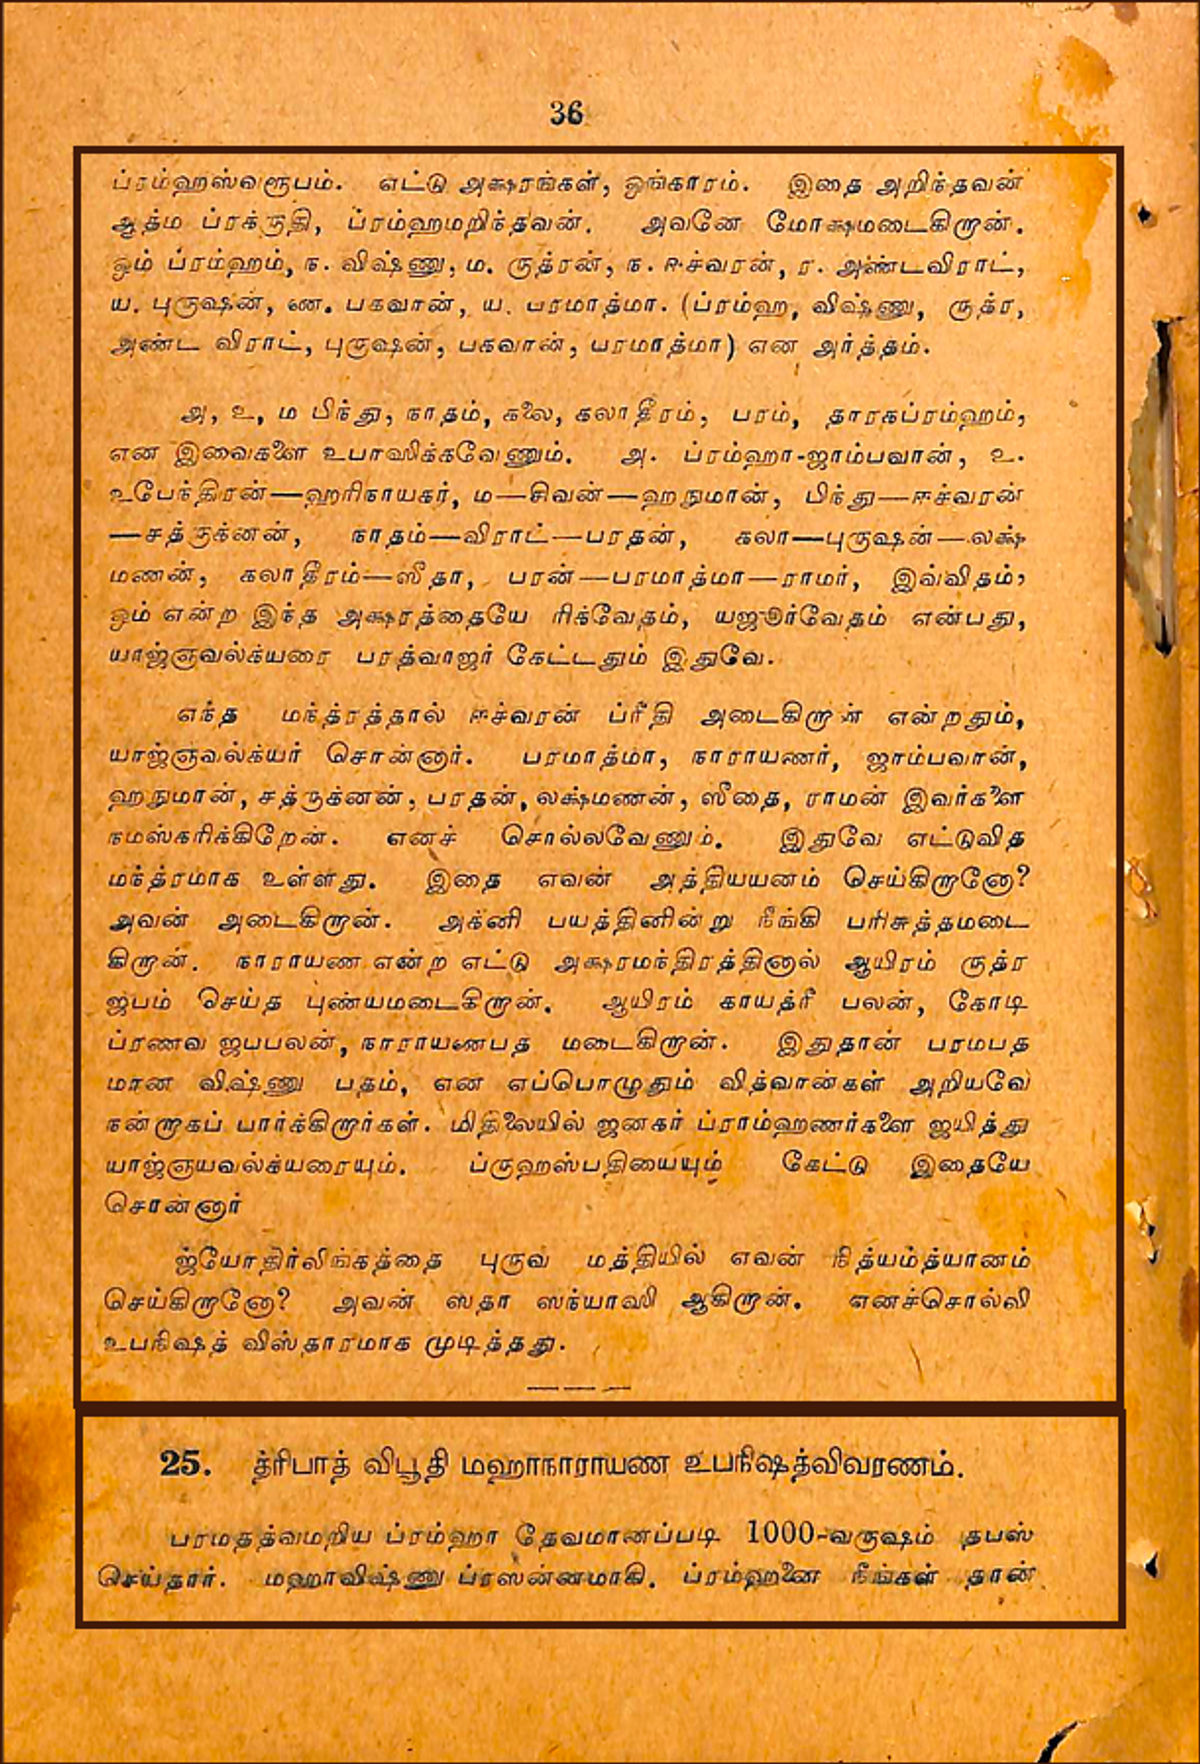 36
ப்ரம்ஹஸ்வரூபம். எட்டு அக்ஷரங்கள், ஓங்காரம். இதை அறிந்தவன்
ஆத்ம ப்ரக்ருதி, ப்ரம்ஹமறிந்தவன். அவனே மோக்ஷமடைகிறான்.
ஓம் ப்ரம்ஹம், ந. விஷ்ணு, ம. ருத்ரன், ந. ஈச்வரன், ர. அண்டவிராட்,
ய. புருஷன், ண. பகவான், ய. பரமாத்மா. (ப்ரம்ஹ, விஷ்ணு, ருத்ர,
அண்ட விராட், புருஷன், பகவான், பரமாத்மா) என அர்த்தம்.
அ, உ, ம பிந்து, நாதம், கலை, கலாதீரம், பரம், தாரகப்ரம்ஹம்,
என இவைகளை உபாஸிக்கவேணும். அ. ப்ரம்ஹா-ஜாம்பவான், உ.
உபேந்திரன்—ஹரிநாயகர், ம—சிவன்—ஹநுமான், பிந்து—ஈச்வரன்
—சத்ருக்னன், நாதம்—விராட்—பரதன், கலா—புருஷன்—லக்ஷ்
மணன், கலாதீரம்—ஸீதா, பரன்—பரமாத்மா—ராமர், இவ்விதம்,
ஓம் என்ற இந்த அக்ஷரத்தையே ரிக்வேதம், யஜுர்வேதம் என்பது,
யாஜ்ஞவல்க்யரை பரத்வாஜர் கேட்டதும் இதுவே.
எந்த மந்த்ரத்தால் ஈச்வரன் ப்ரீதி அடைகிறான் என்றதும்,
யாஜ்ஞவல்க்யர் சொன்னார். பரமாத்மா, நாராயணர், ஜாம்பவான்,
ஹநுமான், சத்ருக்னன், பரதன், லக்ஷ்மணன், ஸீதை, ராமன் இவர்களை
நமஸ்கரிக்கிறேன். எனச் சொல்லவேணும். இதுவே எட்டுவித
மந்த்ரமாக உள்ளது. இதை எவன் அத்தியயனம் செய்கிறானோ?
அவன் அடைகிறான். அக்னி பயத்தினின்று நீங்கி பரிசுத்தமடை
கிறான். நாராயண என்ற எட்டு அக்ஷரமந்திரத்தினால் ஆயிரம் ருத்ர
ஜபம் செய்த புண்யமடைகிறான். ஆயிரம் காயத்ரீ பலன், கோடி
ப்ரணவ ஜபபலன், நாராயணபத மடைகிறான். இதுதான் பரமபத
மான விஷ்ணு பதம், என எப்பொழுதும் வித்வான்கள் அறியவே
நன்றாகப் பார்க்கிறார்கள். மிதிலையில் ஜனகர் ப்ராம்ஹணர்களை ஜயித்து
யாஜ்ஞயவல்க்யரையும். ப்ருஹஸ்பதியையும் கேட்டு இதையே
சொன்னார்
ஜ்யோதிர்லிங்கத்தை புருவ மத்தியில் எவன் நித்யம்த்யானம்
செய்கிறானோ? அவன் ஸதா ஸந்யாஸி ஆகிறான். எனச்சொல்லி
உபநிஷத் விஸ்தாரமாக முடித்தது.
25. த்ரிபாத் விபூதி மஹாநாராயண உபநிஷத்விவரணம்.
பரமதத்வமறிய ப்ரம்ஹா தேவமானப்படி 1000-வருஷம் தபஸ்
செய்தார். மஹாவிஷ்ணு ப்ரஸன்னமாகி. ப்ரம்ஹனை நீங்கள் தான்